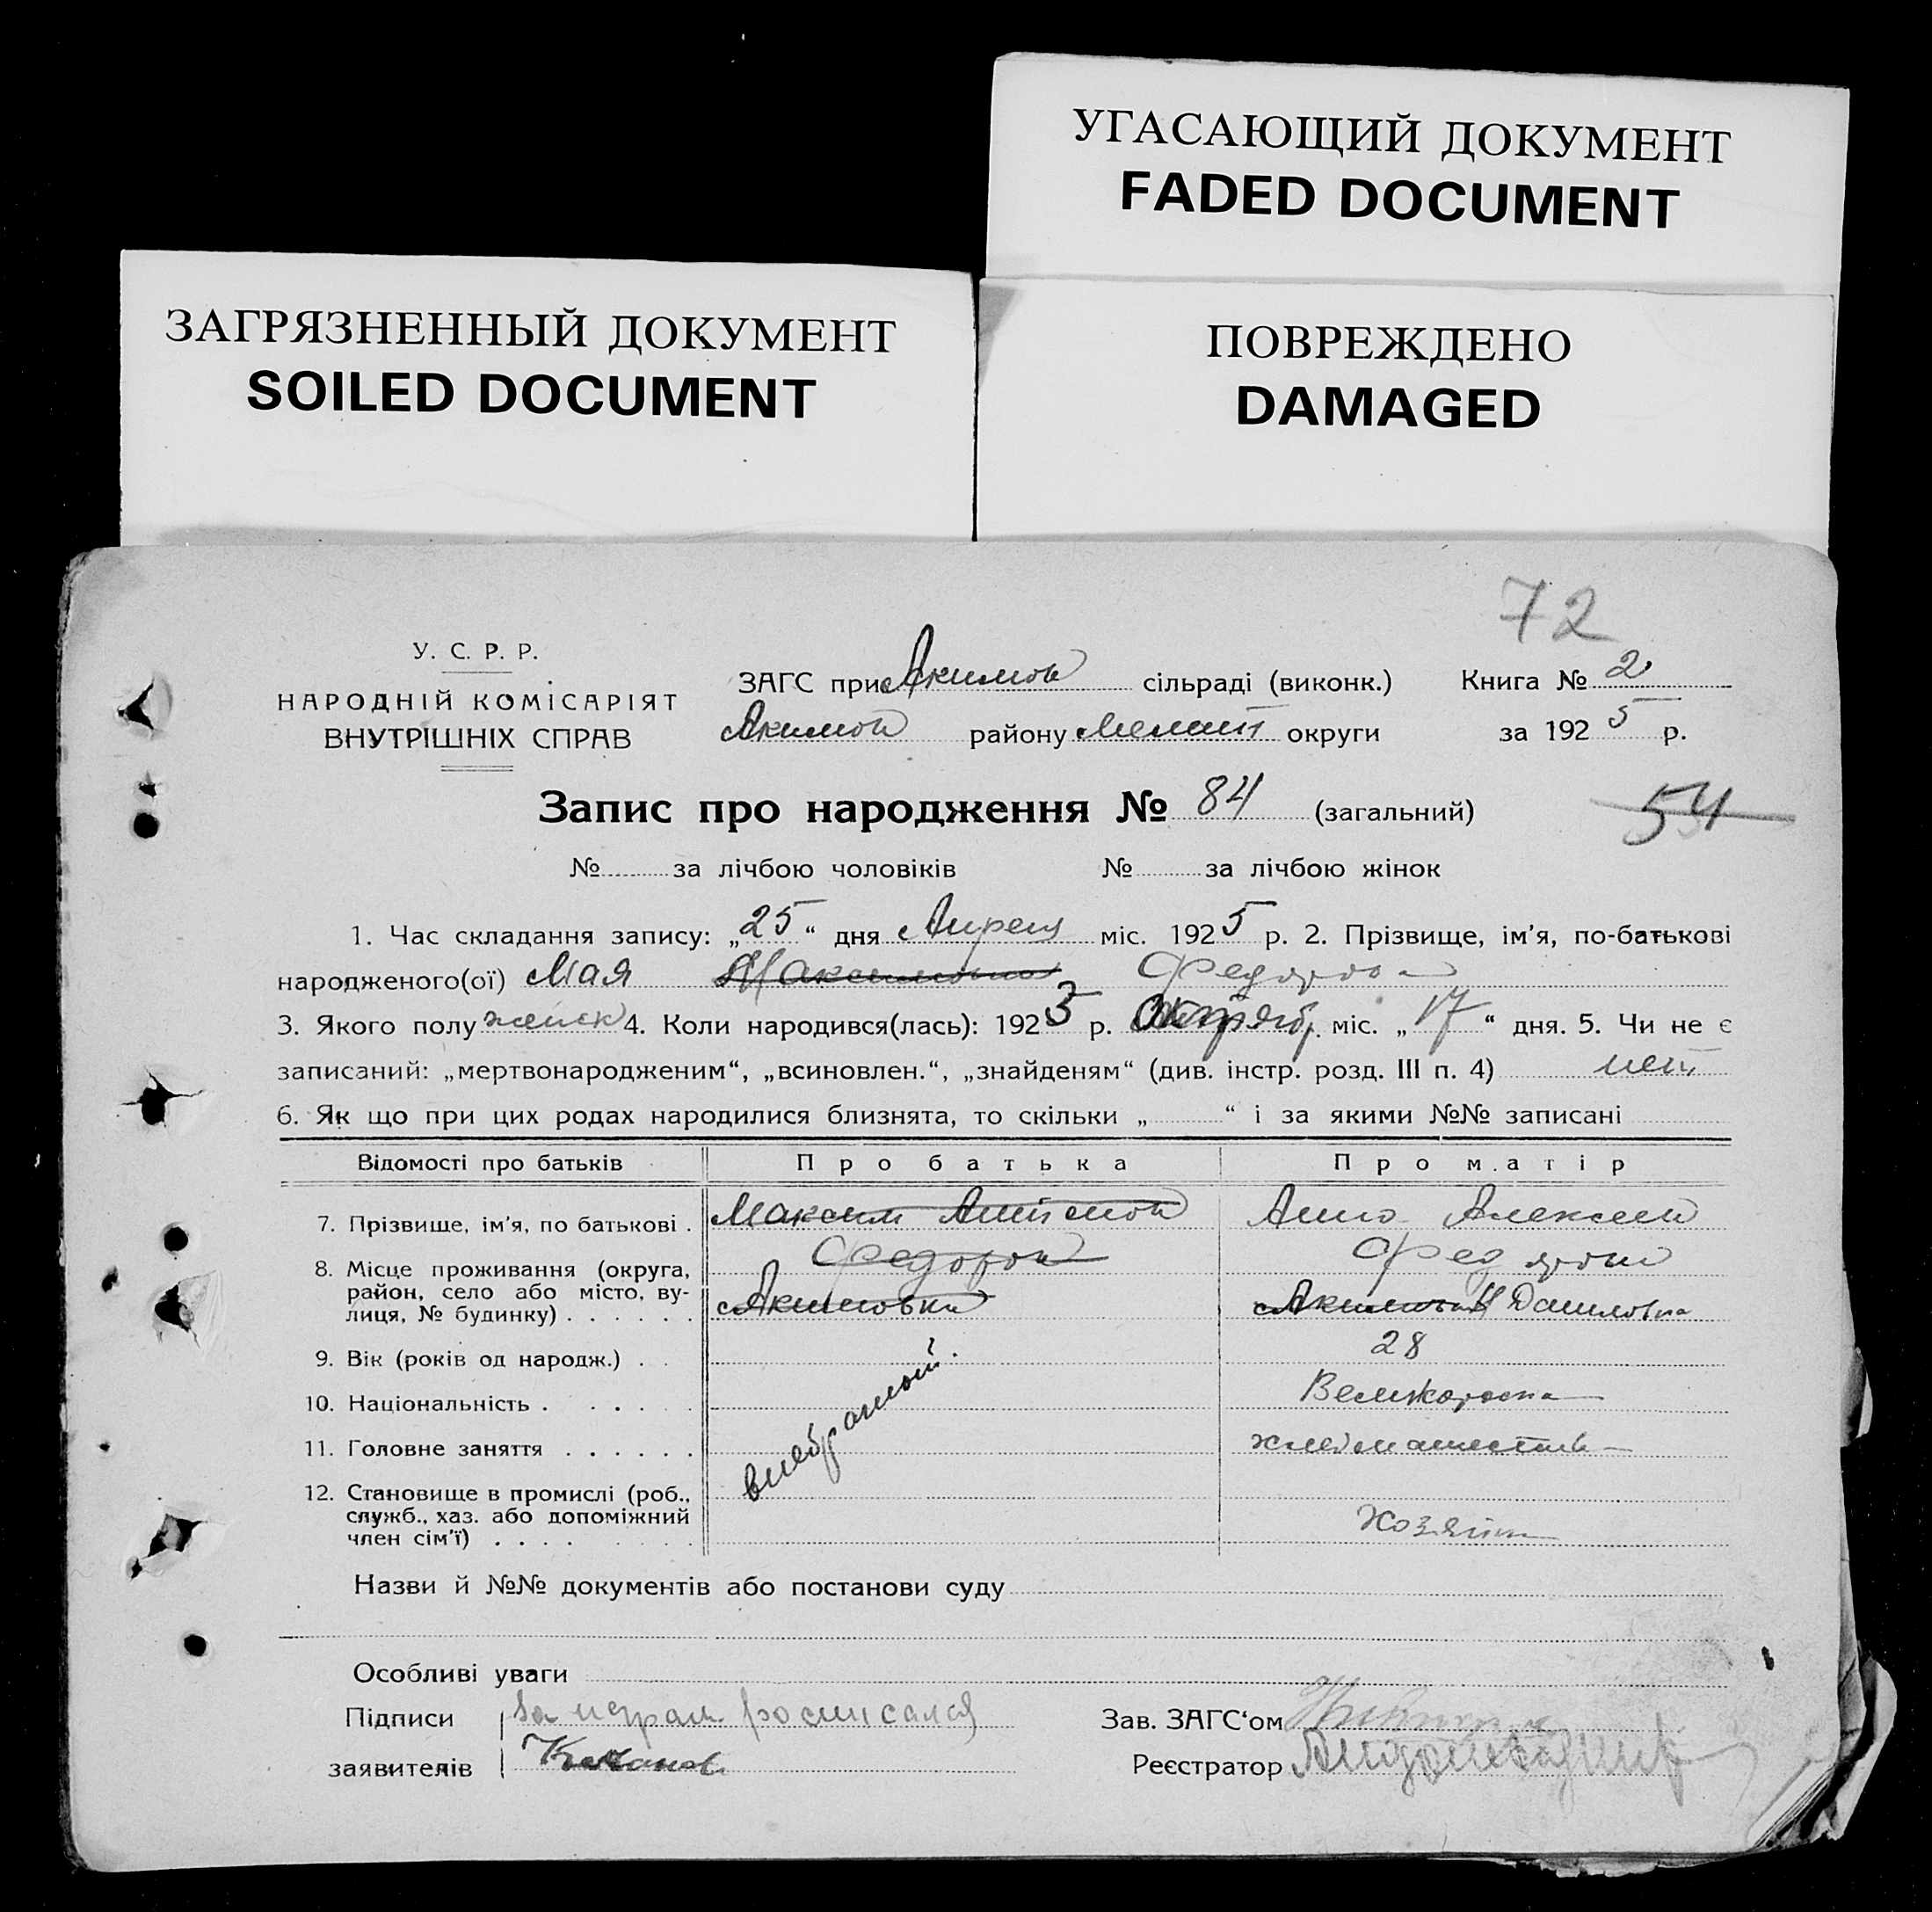 УГАСАЮЩИЙ ДОКУМЕНТ
FADED DOCUMENT
ЗАГРЯЗНЕННЫЙ ДОКУМЕНТ
SOILED DOCUMENT
ПОВРЕЖДЕНО
DAMAGED
72
У. С. Р. Р.
НАРОДНІЙ КОМІСАРІЯТ
ВНУТРІШНІХ СПРАВ
ЗАГС при Акимов сільраді (виконк.) Книга № 2
Акимов району Мелит округи за 1925 р.
Запис про народження № 84 (загальний)
54
№ за лічбою чоловіків № за лічбою жінок
1. Час складання запису: „25“ дня Апреля міс. 1925 р. 2. Прізвище, ім'я, по-батькові
народженого(ої) Мая Максимовна Федорова
3. Якого полу женск 4. Коли народився(лась): 1923 р. Октябр. міс. „17“ дня. 5. Чи не є
записаний: „мертвонародженим“, „всиновлен.“, „знайденям“ (див. інстр. розд. III п. 4) нет
6. Як що при цих родах народилися близнята, то скільки „ “ і за якими №№ записані
Відомості про батьків Про батька Про матір
7. Прізвище, ім'я, по батькові . Максим Антонов Анна Алексеев
Федоров Федорова
8. Місце проживання (округа,
район, село або місто, ву-
лиця, № будинку) . . . . . . Акимовка Акимовка Н Даниловка
9. Вік (років од народж.) . . 28
10. Національність . . . . . . Великороска
11. Головне заняття . . . . . .
внебрачный.
12. Становище в промислі (роб.,
служб., хаз. або допоміжний
член сім'ї) . . . . Хозяйка
Назви й №№ документів або постанови суду
Особливі уваги
Підписи За неграм росписался Зав. ЗАГС‘ом
заявителів Реєстратор